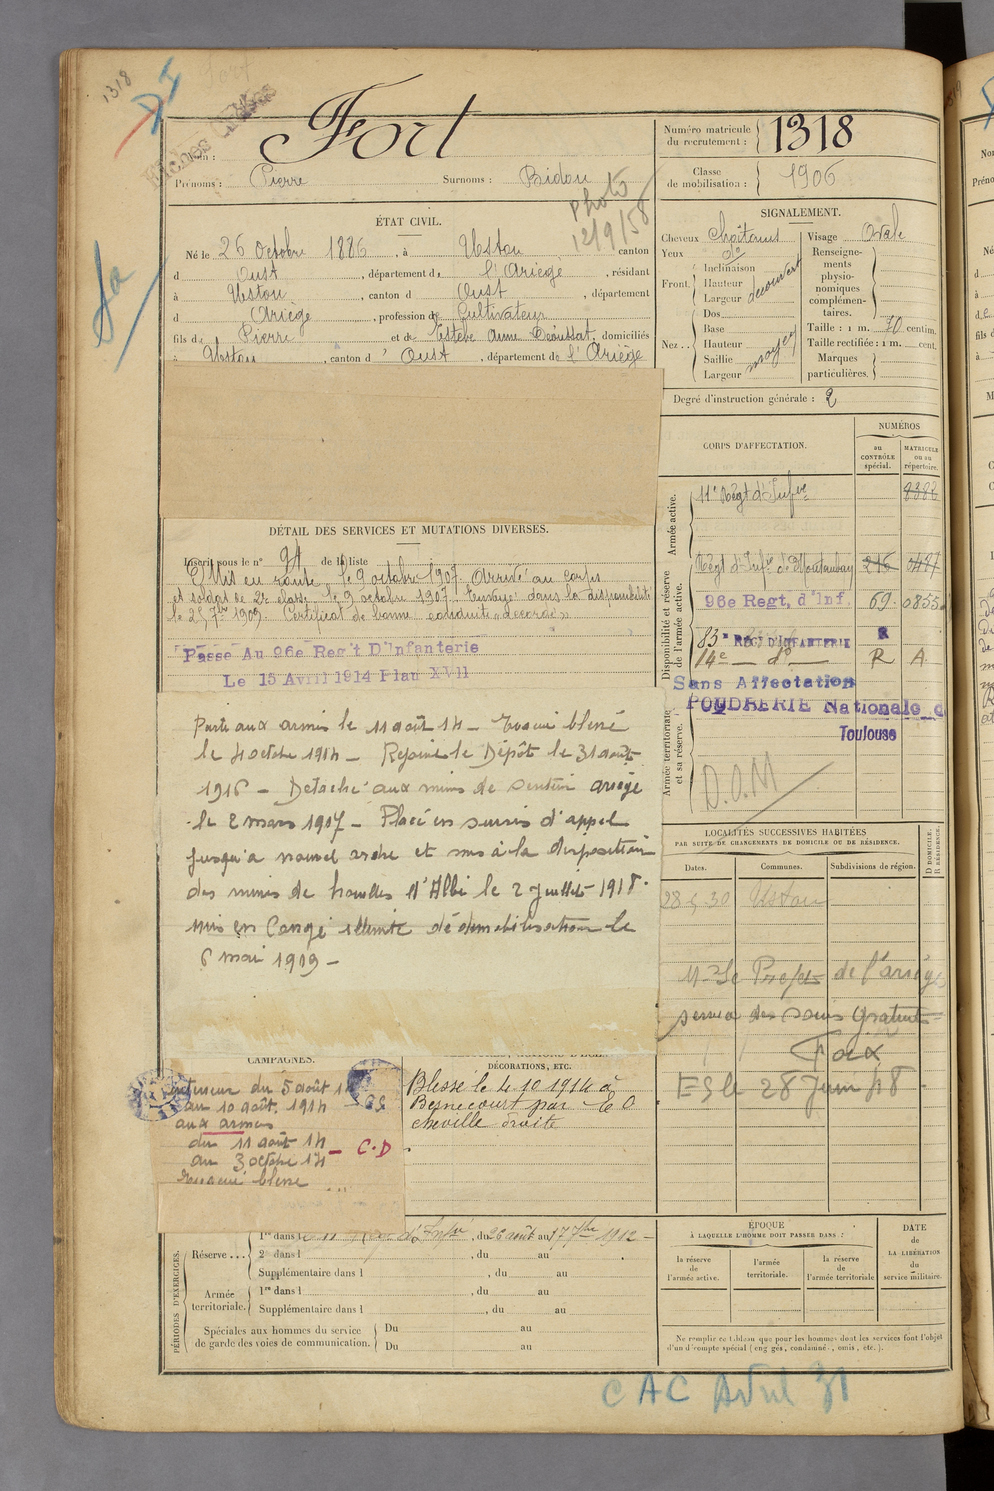 1318
Fort
Nom :
Prénoms : Pierre Surnoms : Bidou
Photo
12/9/58
Numéro matricule
du recrutement : 1318
Classe
de mobilisation : 1906
ÉTAT CIVIL.
Né le 26 Octobre 1886, à Ustou canton
d Oust, département de l'Ariège, résidant
à Ustou, canton d Oust, département
d Ariège, profession de Cultivateur
fils de Pierre et de Estebe Anne, domiciliés
à Ustou, canton d' Oust, département de l'Ariège
SIGNALEMENT.
Cheveux Châtains
Yeux do
Front. Inclinaison
Hauteur
Largeur découvert
Nez. Dos
Base
Hauteur
Saillie
Largeur moyen
Visage Ovale
Renseigne-
ments
physio-
nomiques
complémen-
taires.
Taille : 1 m. 70 centim.
Taille rectifiée : 1 m. cent.
Marques
particulières.
Degré d'instruction générale : 2
DÉTAIL DES SERVICES ET MUTATIONS DIVERSES.
Inscrit sous le n° 91 de la liste
Mis en route le 9 octobre 1907. Arrivé au corps
et soldat de 2e classe le 9 octobre 1907. Envoyé dans la disponibilité
le 25 7bre 1909. Certificat de bonne conduite "accordé"
Passe Au 96e Reg't D'Infanterie
Le 15 Avril 1914 Plan XVII
Parti aux armées le 11 août 14 – Evacué blessé
le 4 octobre 1914 – Rejoint le Dépôt le 31 août
1916 – Détaché aux mines de Sentein ariège
le 2 mars 1917 – Placé en sursis d'appel
jusqu'à nouvel ordre et mis à la disposition
des mines de houilles d'Albi le 2 Juillet 1918.
Mis en Congé illimité de démobilisation le
6 mai 1919 –
CORPS D'AFFECTATION.
NUMÉROS
au
CONTRÔLE
spécial.
MATRICULE
ou au
répertoire.
Armée active.
11e Régt d'Infie
8382
Disponibilité et réserve
de l'armée active.
Régt d'Infie de Montauban 216
96e Regt. d'Inf. 69. 0855
83e REGt D'INFANTERIE R
14e — do — R A
Sans Affectation
POUDRERIE Nationale d
Toulouse
Armée territoriale
et sa réserve.
D.O.M
LOCALITÉS SUCCESSIVES HABITÉES
PAR SUITE DE CHANGEMENTS DE DOMICILE OU DE RÉSIDENCE.
Dates. Communes. Subdivisions de région. D DOMICILE. R RÉSIDENCE.
28.5.30 Ustou
Mr le Prefet de l'ariège
service des soins gratuits
Foix
ES le 28 Juin 48
CAMPAGNES.
interieur du 5 août 14
au 10 août 1914
aux armées
du 11 août 14
au 3 octobre 14 – C.D
Evacué blessé
DÉCORATIONS, ETC.
Blessé le 4.10.1914 à
par E O
cheville droite
PÉRIODES D'EXERCICES.
Réserve 1re dans l 11e Rég. d'Infie, du 26 août au 17 7bre 1912
2e dans l , du au
Supplémentaire dans l , du au
Armée
territoriale. 1re dans l , du au
Supplémentaire dans l , du au
Spéciales aux hommes du service
de garde des voies de communication. Du au
Du au
ÉPOQUE
À LAQUELLE L'HOMME DOIT PASSER DANS :
la réserve
de
l'armée active.
l'armée
territoriale.
la réserve
de
l'armée territoriale
DATE
de
LA LIBÉRATION
du
service militaire.
Ne remplir ce tableau que pour les hommes dont les services font l'objet
d'un décompte spécial (engagés, condamnés, omis, etc.).
CAC Avril 31